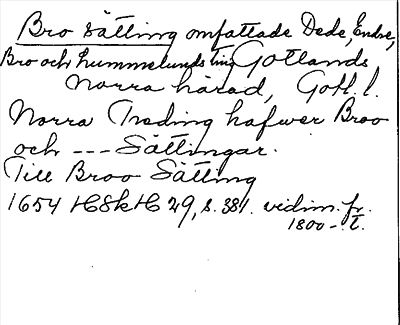 Bro sätting omfattade Dede, Endre,
Bro och Hummelunds ting Gotlands
Norra härad, Gotl. l.
Norra Treding hafwer Broo
och --- Sättingar.
Till Broo Sätting
1654 HSkH 29, s. 381. vidim. fr.
1800-t.